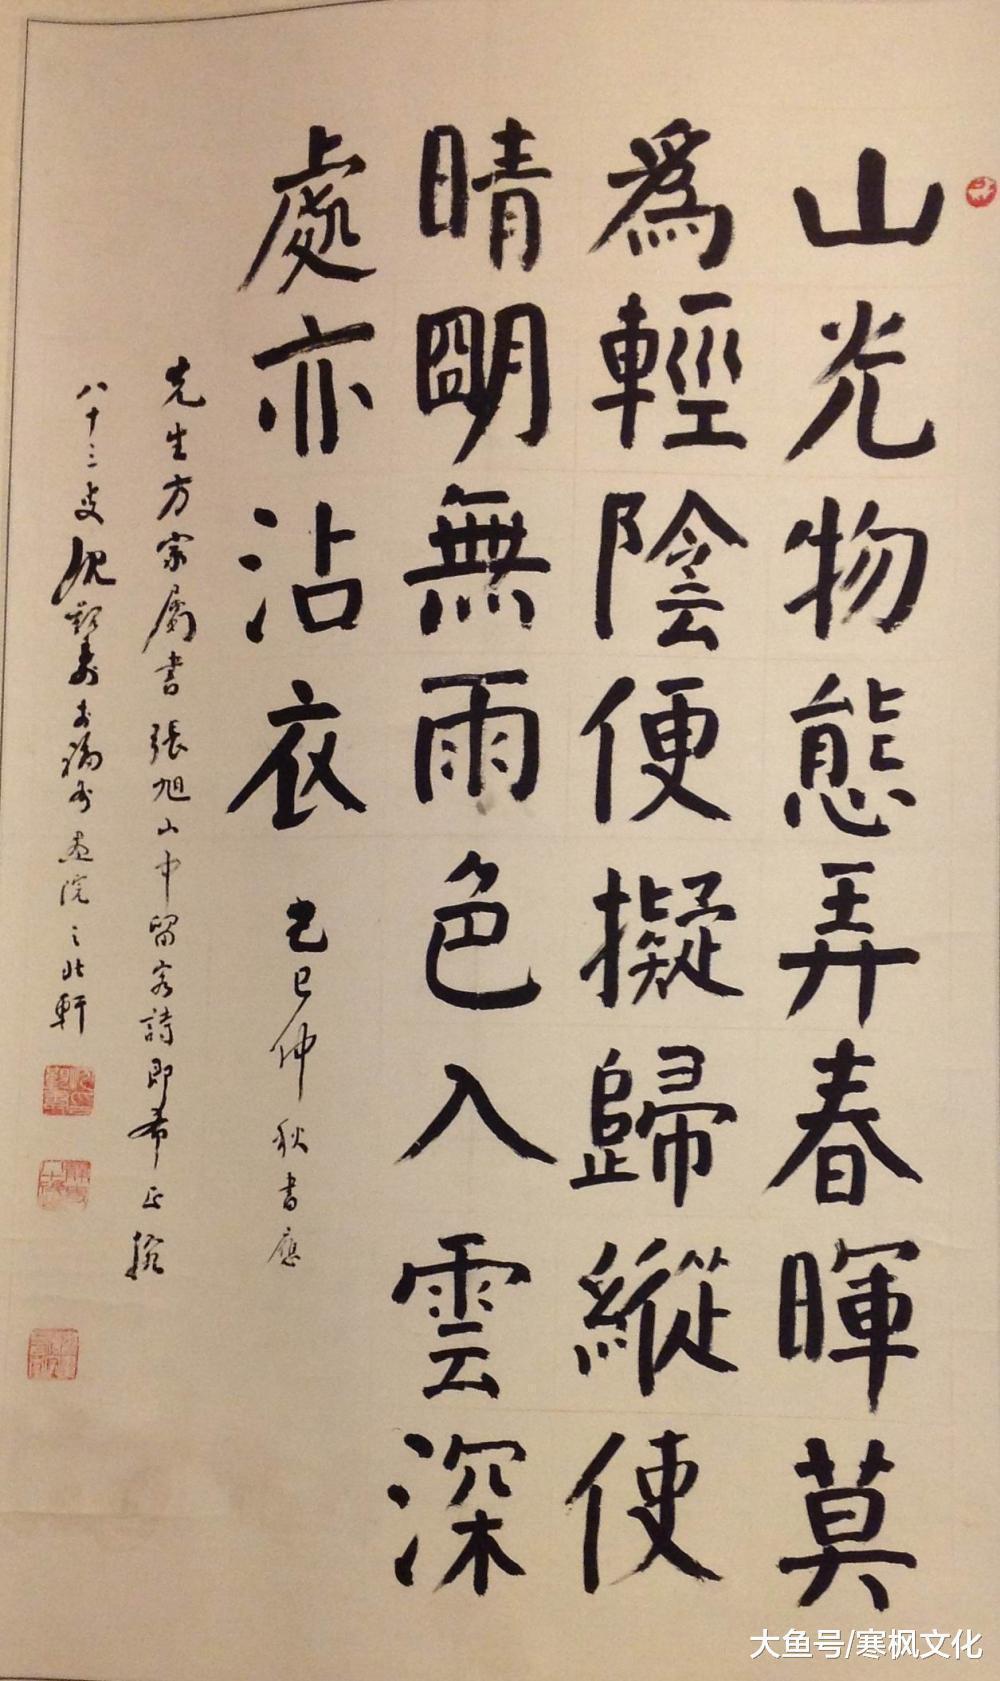 山光物態弄春暉莫
為輕陰便擬歸縱使
晴朙無雨色入雲深
處亦沾衣
己巳仲秋書應
先生方家屬書張旭山中留客詩即希正捥
八十三叟沈覲壽於福州畫院之北軒
大鱼号/寒枫文化